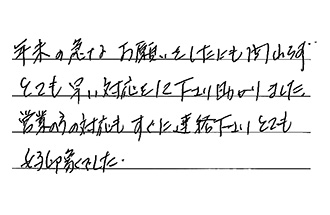 年末の急なお願いをしたにも関わらず
とても早い対応をして下さり助かりました。
営業の方の対応もすぐに連絡下さいとても
好印象でした。